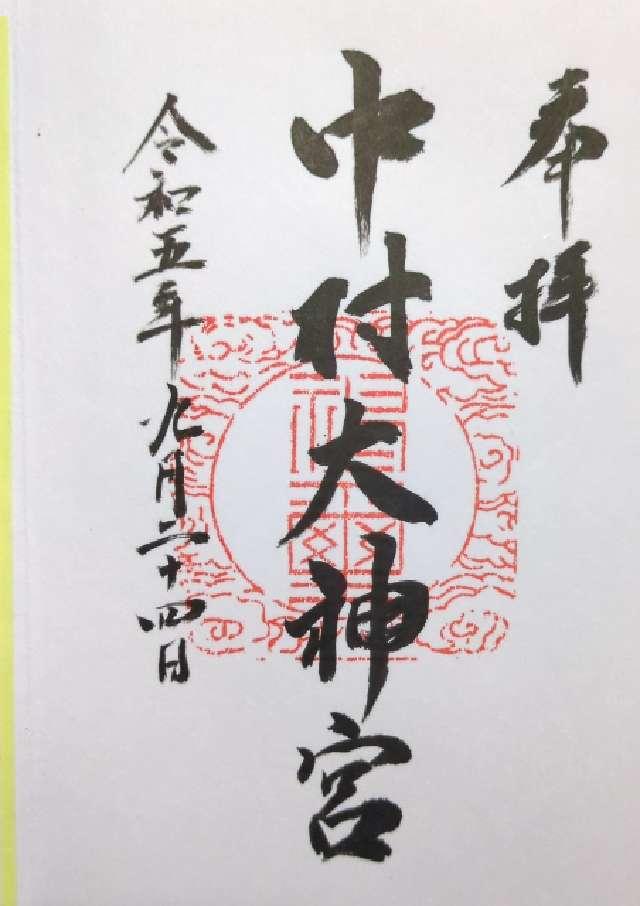 奉拝
中村大神宮
令和五年九月二十四日